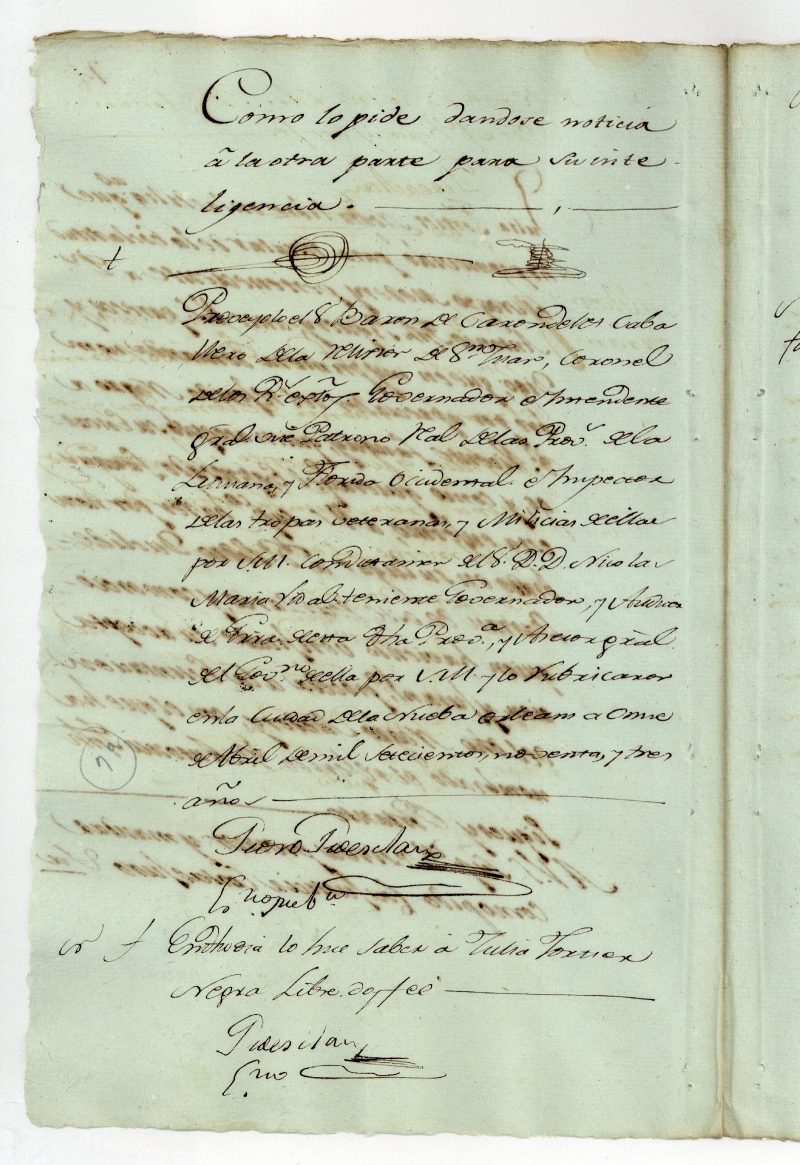 Como lo pide dandose noticia
â la otra parte para su inte-
ligencia.
Proveyolo el S.r Baron de Carondelet Caba
llero de la Relixion de S.n Juan, Coronel
de los R.s extos Governador e Yntendente
gral vice Patrono Rial de las Prov.s de la
Luisiana, y Florida Occidental e Ynspector
de las tropas veteranas, y Milicias de ellas
por S.M. con dictamen del S.r D.n D. Nicolas
Maria Vidal teniente Governador, y Auditor
de Grra. de esta dha Prov.a, y Asesor gral.
del Gov.no de ella por S.M. y lo rubricaron
en la Ciudad de la Nueba Orleans a Onse
de Abril de mil setecientos, noventa, y tres
años
Pedro Pedesclaux
Es.no pub.co
En dho dia lo hice saber a Julia Forner
Negra Libre doy feé
Pedesclaux
Es.no